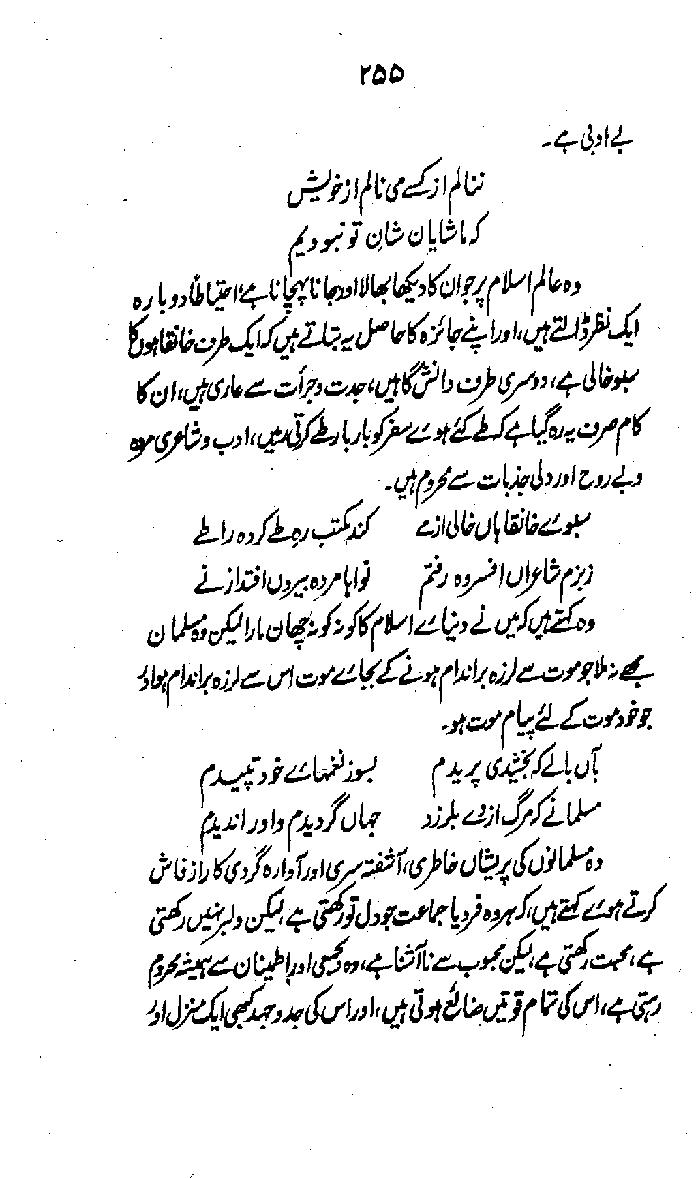 ۲۵۵
بے ادبی ہے۔
ننالم از کسے می نالم از خویش
کہ ما شایان شان تو نبودیم
وہ عالم اسلام پر جو ان کا دیکھا بھالا اور جانا پہچانا ہے، احتیاطاً دوبارہ
ایک نظر ڈالتے ہیں، اور اپنے جائزہ کا حاصل یہ بتلاتے ہیں کہ ایک طرف خانقاہوں کا
سبو خالی ہے، دوسری طرف دانش گاہیں، جدت و جرأت سے عاری ہیں، ان کا
کام صرف یہ رہ گیا ہے کہ طے کئے ہوئے سفر کو بار بار طے کرتی رہیں، ادب و شاعری مردہ
و بے روح اور دلی جذبات سے محروم ہیں۔
سبوے خانقاہاں خالی ازمے کند مکتب رہ طے کردہ را طے
زبزم شاعراں افسردہ رفتم نواہا مردہ بیروں افتد از نے
وہ کہتے ہیں کہ میں نے دنیاے اسلام کا کونہ کونہ چھان مارا لیکن وہ مسلمان
مجھے نہ ملا جو موت سے لرزہ براندام ہونے کے بجاے موت اس سے لرزہ براندام ہو اور
جو خود موت کے لئے پیام موت ہو۔
بآں بالے کہ بخشیدی پریدم بسوز نغمہاے خود تپیدم
مسلمانے کہ مرگ ازوے بلرزد جہاں گردیدم و اور اندیدم
وہ مسلمانوں کی پریشاں خاطری، آشفتہ سری اور آوارہ گردی کا راز فاش
کرتے ہوے کہتے ہیں، کہ ہر وہ فرد یا جماعت جو دل تو رکھتی ہے، لیکن دلبر نہیں رکھتی
ہے، محبت رکھتی ہے، لیکن محبوب سے ناآشنا ہے، وہ دلجمعی اور اطمینان سے ہمیشہ محروم
رہتی ہے، اس کی تمام قوتیں ضائع ہوتی ہیں، اور اس کی جدوجہد کبھی ایک منزل اور